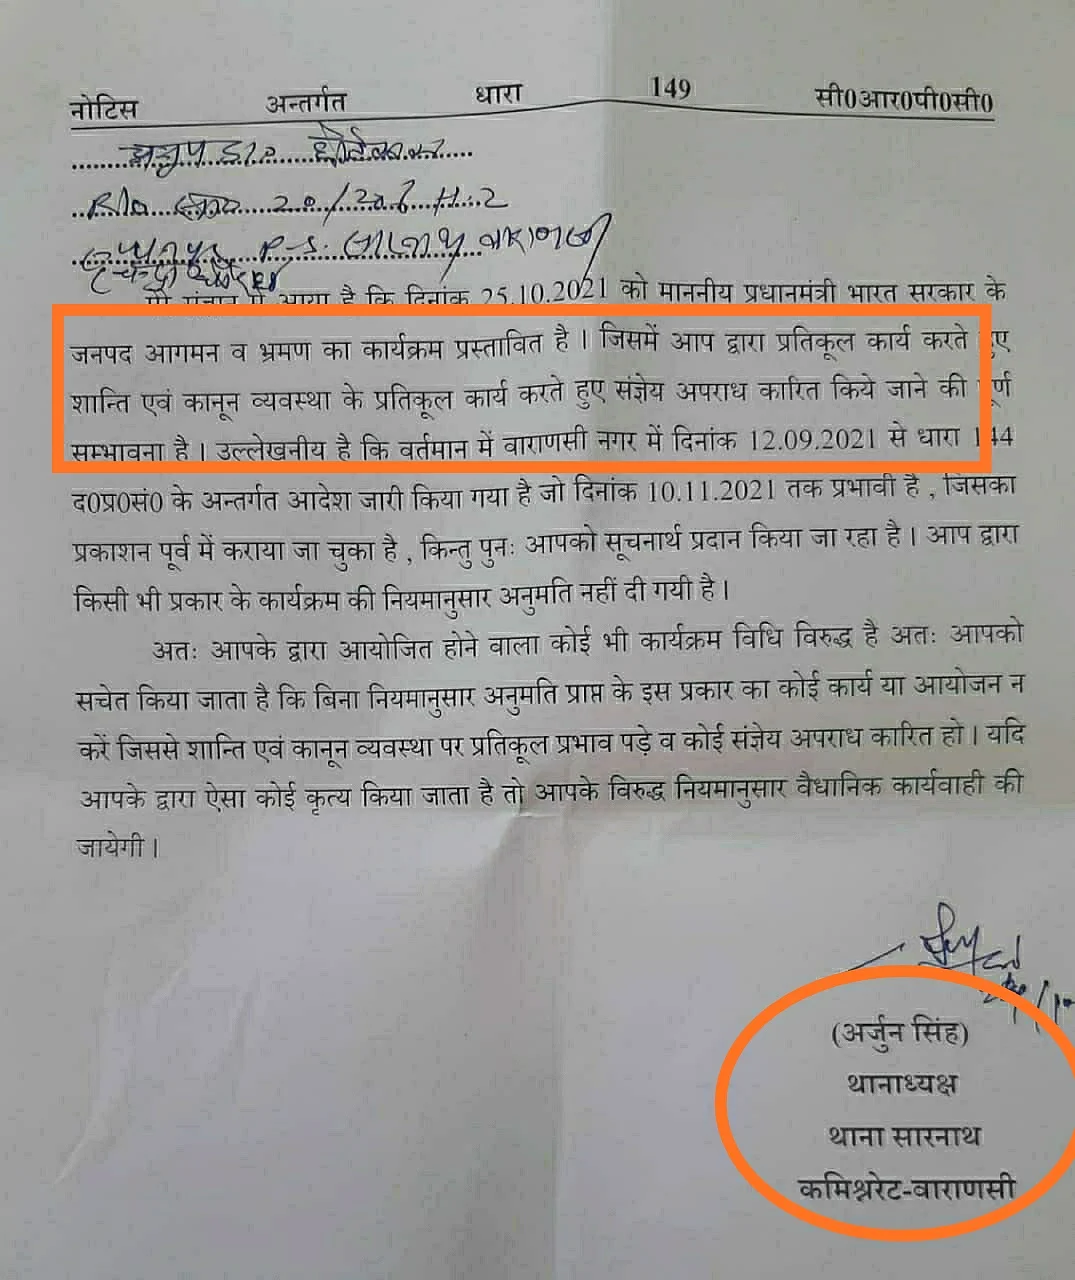 नोटिस अन्तर्गत धारा 149 सी0आर0पी0सी0
R/o 20/206 H.2
P.S. वाराणसी
आया है कि दिनांक 25.10.2021 को माननीय प्रधानमंत्री भारत सरकार के
जनपद आगमन व भ्रमण का कार्यक्रम प्रस्तावित है । जिसमें आप द्वारा प्रतिकूल कार्य करते हुए
शान्ति एवं कानून व्यवस्था के प्रतिकूल कार्य करते हुए संज्ञेय अपराध कारित किये जाने की पूर्ण
सम्भावना है । उल्लेखनीय है कि वर्तमान में वाराणसी नगर में दिनांक 12.09.2021 से धारा 144
द0प्र0सं0 के अन्तर्गत आदेश जारी किया गया है जो दिनांक 10.11.2021 तक प्रभावी है , जिसका
प्रकाशन पूर्व में कराया जा चुका है , किन्तु पुनः आपको सूचनार्थ प्रदान किया जा रहा है । आप द्वारा
किसी भी प्रकार के कार्यक्रम की नियमानुसार अनुमति नहीं दी गयी है ।
अतः आपके द्वारा आयोजित होने वाला कोई भी कार्यक्रम विधि विरुद्ध है अतः आपको
सचेत किया जाता है कि बिना नियमानुसार अनुमति प्राप्त के इस प्रकार का कोई कार्य या आयोजन न
करें जिससे शान्ति एवं कानून व्यवस्था पर प्रतिकूल प्रभाव पड़े व कोई संज्ञेय अपराध कारित हो । यदि
आपके द्वारा ऐसा कोई कृत्य किया जाता है तो आपके विरुद्ध नियमानुसार वैधानिक कार्यवाही की
जायेगी ।
(अर्जुन सिंह)
थानाध्यक्ष
थाना सारनाथ
कमिश्नरेट-वाराणसी